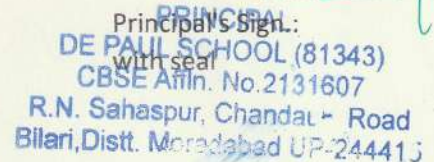 Principal's Sign.:
PRINCIPAL
DE PAUL SCHOOL (81343)
with seal
CBSE Affln. No.2131607
R.N. Sahaspur, Road
Bilari,Distt. Moradabad UP-244415